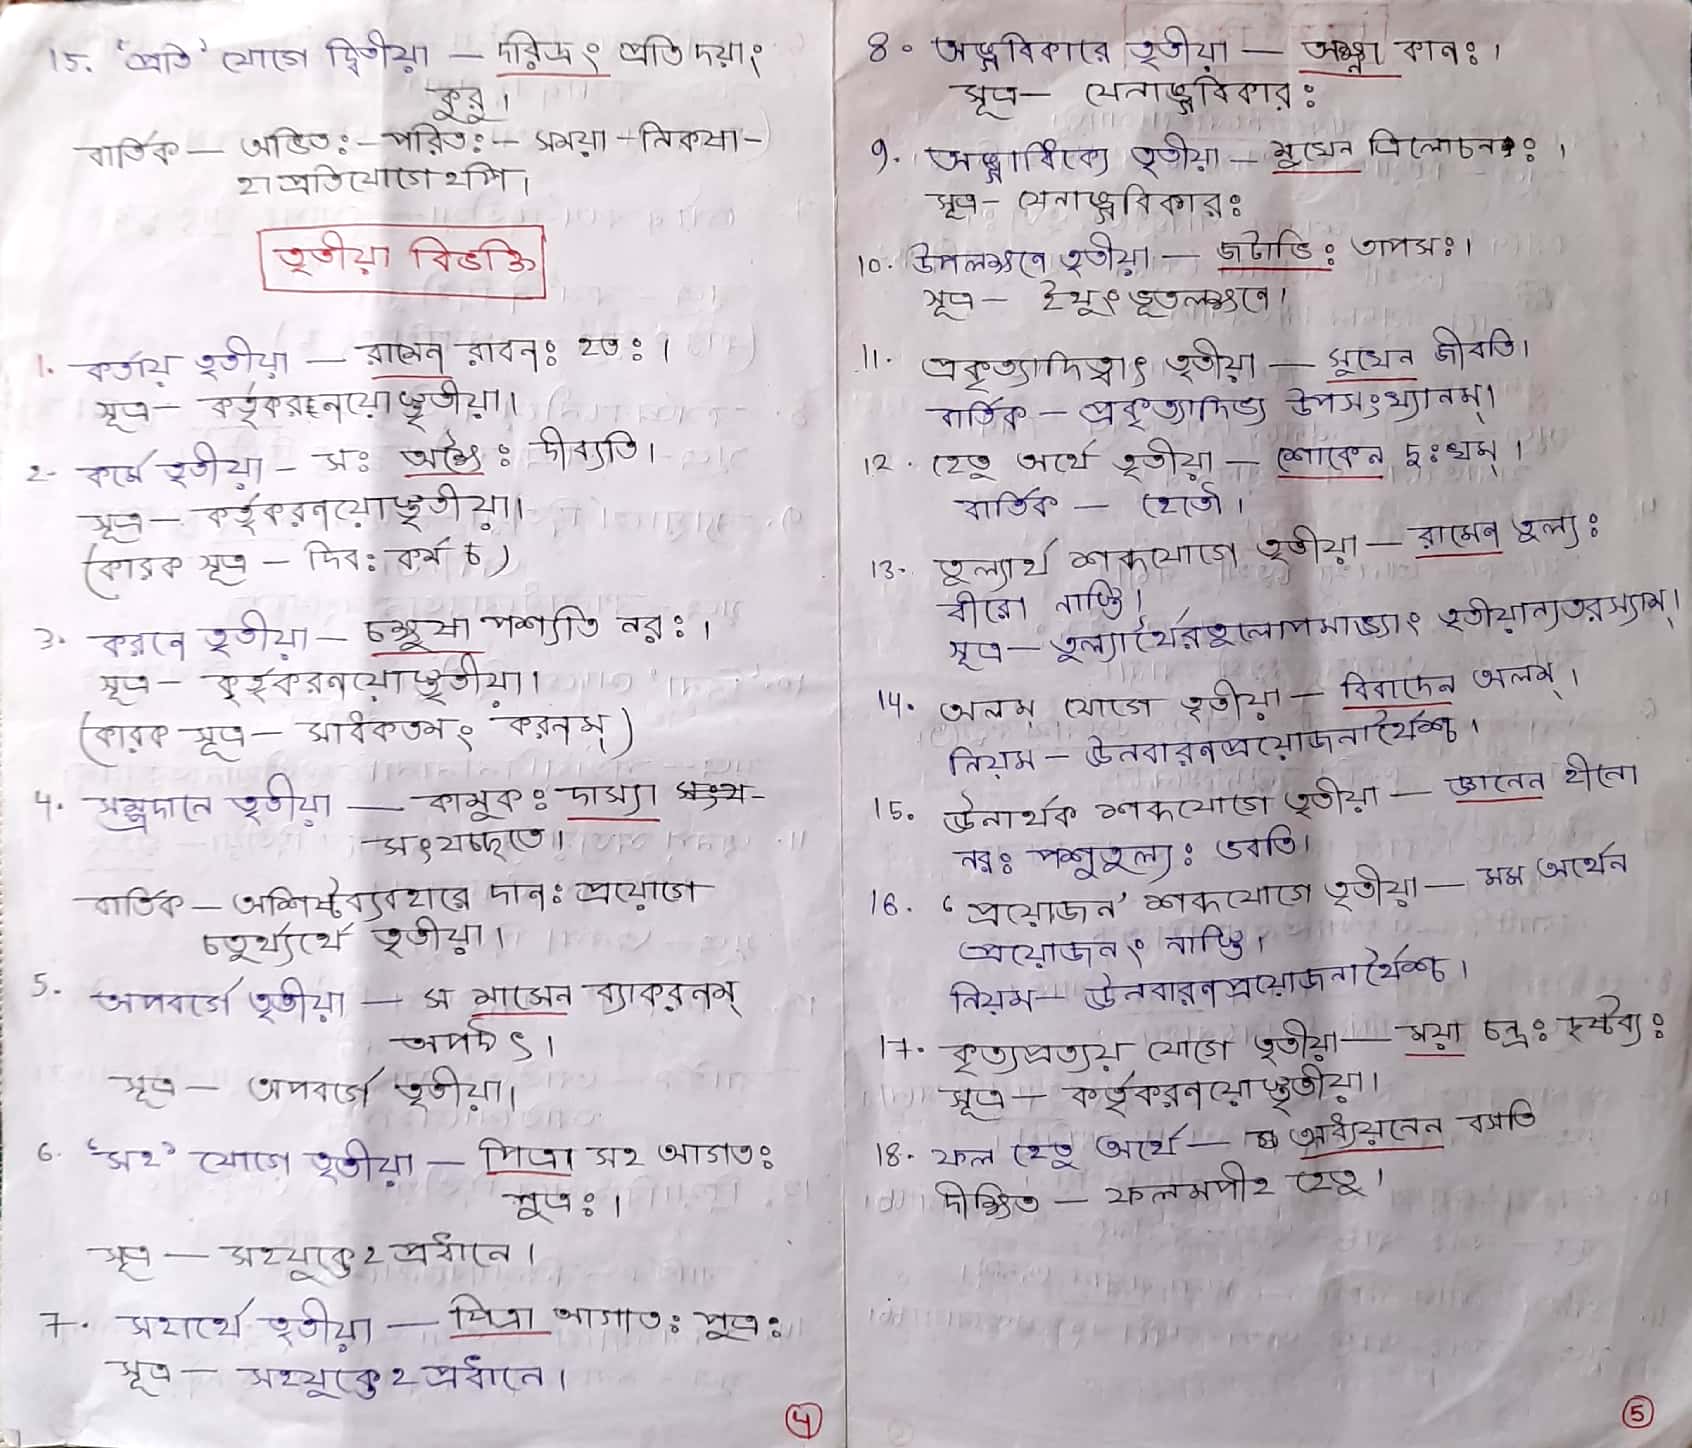 15. 'প্রতি' যোগে দ্বিতীয়া — দরিদ্রং প্রতি দয়াং
কুরু।
বার্তিক — অভিতঃ-পরিতঃ- সময়া-নিকষা-
হা প্রতিযোগেহপি।
তৃতীয়া বিভক্তি
1. কর্তায় তৃতীয়া — রামেন রাবনঃ হতঃ।
সূত্র — কর্তৃকরনয়োস্তৃতীয়া।
2- কর্মে তৃতীয়া - সঃ অক্ষৈঃ দীব্যতি।
সূত্র — কর্তৃকরনয়োস্তৃতীয়া।
(কারক সূত্র — দিবঃ কর্ম চ)
3. করনে তৃতীয়া — চক্ষুষা পশ্যতি নরঃ।
সূত্র — কর্তৃকরনয়োস্তৃতীয়া।
(কারক সূত্র — সাধকতমং করনম্)
4. সম্প্রদানে তৃতীয়া — কামুকঃ দাস্যা
সংযচ্ছতে।
বার্তিক — অশিষ্টব্যবহারে দানঃ প্রয়োগে
চতুর্থ্যর্থে তৃতীয়া।
5. অপবর্গে তৃতীয়া — স মাসেন ব্যাকরনম্
অপঠৎ।
সূত্র — অপবর্গে তৃতীয়া।
6. 'সহ' যোগে তৃতীয়া — পিত্রা সহ আগতঃ
পুত্রঃ।
সূত্র — সহযুক্তেহপ্রধানে।
7. সহার্থে তৃতীয়া — পিত্রা আগাতঃ পুত্রঃ
সূত্র — সহযুক্তেহপ্রধানে।
4
8. অঙ্গবিকারে তৃতীয়া — অক্ষ্ণা কানঃ।
সূত্র — যেনাঙ্গবিকারঃ
9. অঙ্গাধিক্যে তৃতীয়া — মুখেন ত্রিলোচনঃ।
সূত্র — যেনাঙ্গবিকারঃ
10. উপলক্ষনে তৃতীয়া — জটাভিঃ তাপসঃ।
সূত্র — ইত্থংভূতলক্ষনে।
11. প্রকৃত্যাদিত্বাৎ তৃতীয়া — সুখেন জীবতি।
বার্তিক — প্রকৃত্যাদিভ্য উপসংখ্যানম্।
12. হেতু অর্থে তৃতীয়া — শোকেন দুঃখম্।
বার্তিক — হেতৌ।
13. তুল্যার্থ শব্দযোগে তৃতীয়া — রামেন তুল্যঃ
বীরো নাস্তি।
সূত্র — তুল্যার্থৈরতুলোপমাভ্যাং তৃতীয়ান্যতরস্যাম্।
14. অলম যোগে তৃতীয়া — বিবাদেন অলম্।
নিয়ম — ঊনবারনপ্রয়োজনার্থৈশ্চ।
15. ঊনার্থক শব্দযোগে তৃতীয়া — জ্ঞানেন হীনো
নরঃ পশুতুল্যঃ ভবতি।
16. 'প্রয়োজন' শব্দযোগে তৃতীয়া — মম অর্থেন
প্রয়োজনং নাস্তি।
নিয়ম — ঊনবারনপ্রয়োজনার্থৈশ্চ।
17. কৃত্যপ্রত্যয় যোগে তৃতীয়া — ময়া চন্দ্রঃ দৃষ্টব্যঃ
সূত্র — কর্তৃকরনয়োস্তৃতীয়া।
18. ফল হেতু অর্থে — অধ্যয়নেন বসতি
দীক্ষিত — ফলমপীহ হেতু।
5